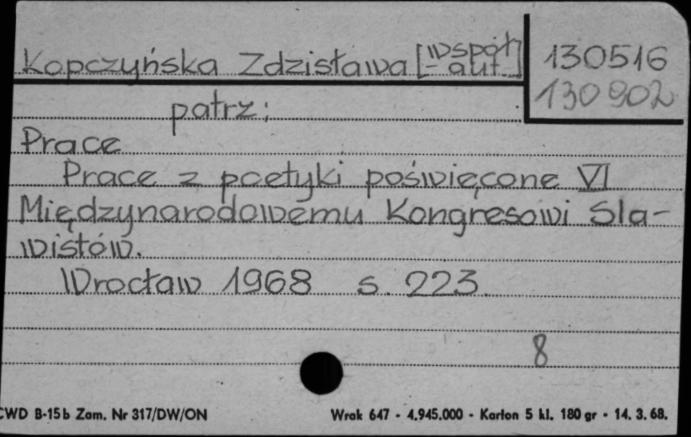 Kopczyńska Zdzisława [współ-
aut.]
130516
130902
patrz:
Prace
Prace z poetyki poświęcone VI
Międzynarodowemu Kongresowi Sla-
wistów.
Wrocław 1968 s. 223
8
CWD B-15b Zam. Nr 317/DW/ON Wrak 647 - 4.945.000 - Karton 5 kl. 180 gr - 14. 3. 68.